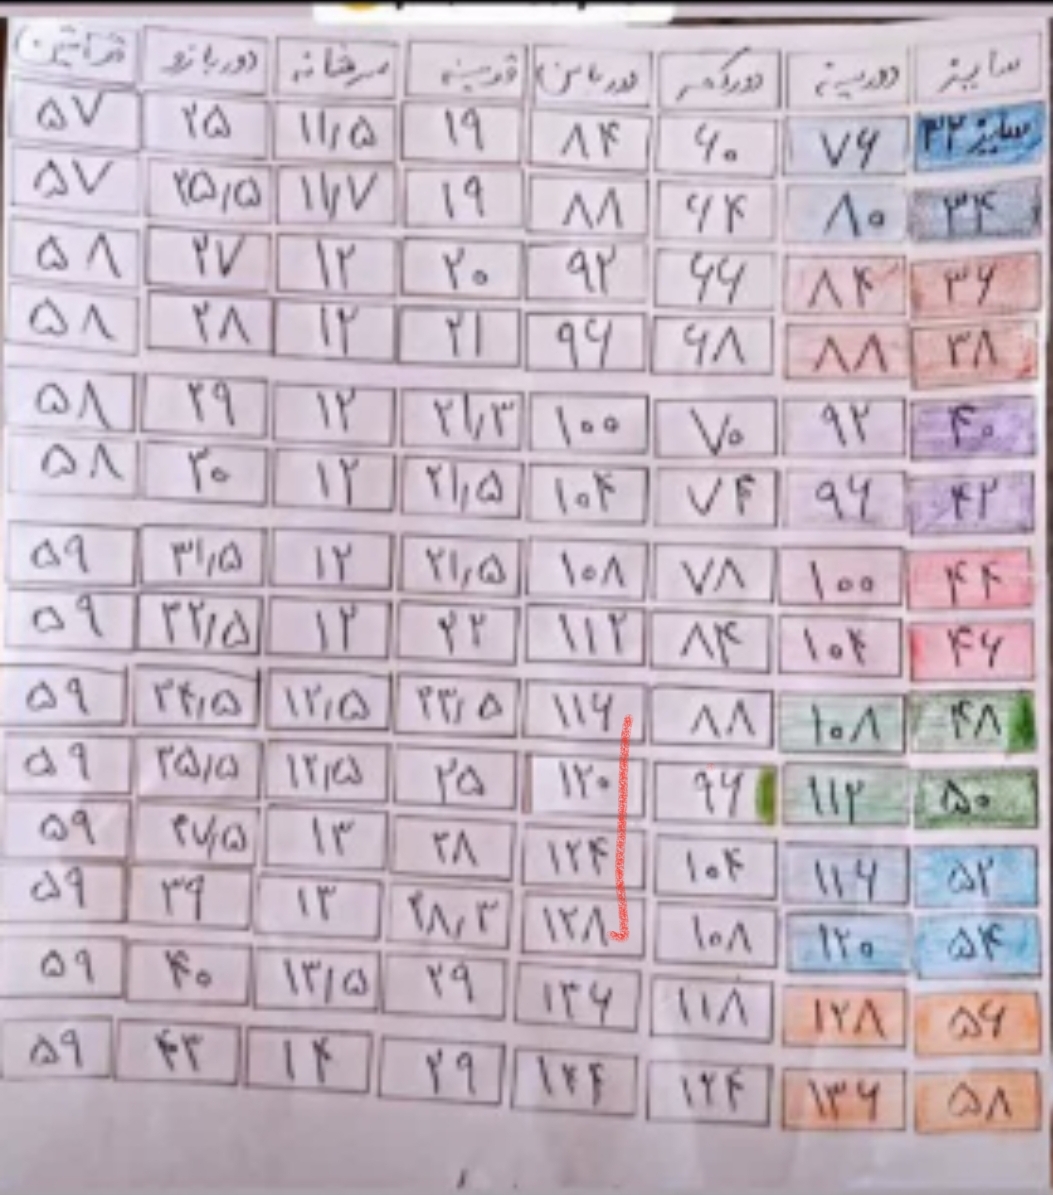 سایز دورسینه دورکمر دور باسن قدسینه سرشانه دوربازو قدآستین
سایز ۳۲ ۷۶ ۶۰ ۸۴ ۱۹ ۱۱٫۵ ۲۵ ۵۷
۳۴ ۸۰ ۶۴ ۸۸ ۱۹ ۱۱٫۷ ۲۵٫۵ ۵۷
۳۶ ۸۴ ۶۶ ۹۲ ۲۰ ۱۲ ۲۷ ۵۸
۳۸ ۸۸ ۶۸ ۹۶ ۲۱ ۱۲ ۲۸ ۵۸
۴۰ ۹۲ ۷۰ ۱۰۰ ۲۱٫۳ ۱۲ ۲۹ ۵۸
۴۲ ۹۶ ۷۴ ۱۰۴ ۲۱٫۵ ۱۲ ۳۰ ۵۸
۴۴ ۱۰۰ ۷۸ ۱۰۸ ۲۱٫۵ ۱۲ ۳۱٫۵ ۵۹
۴۶ ۱۰۴ ۸۴ ۱۱۲ ۲۲ ۱۲ ۳۲٫۵ ۵۹
۴۸ ۱۰۸ ۸۸ ۱۱۶ ۲۳٫۵ ۱۲٫۵ ۳۴٫۵ ۵۹
۵۰ ۱۱۲ ۹۶ ۱۲۰ ۲۵ ۱۲٫۵ ۳۵٫۵ ۵۹
۵۲ ۱۱۶ ۱۰۴ ۱۲۴ ۲۸ ۱۳ ۳۷٫۵ ۵۹
۵۴ ۱۲۰ ۱۰۸ ۱۲۸ ۲۸٫۳ ۱۳ ۳۹ ۵۹
۵۶ ۱۲۸ ۱۱۸ ۱۳۶ ۲۹ ۱۳٫۵ ۴۰ ۵۹
۵۸ ۱۳۶ ۱۲۴ ۱۴۴ ۲۹ ۱۴ ۴۳ ۵۹